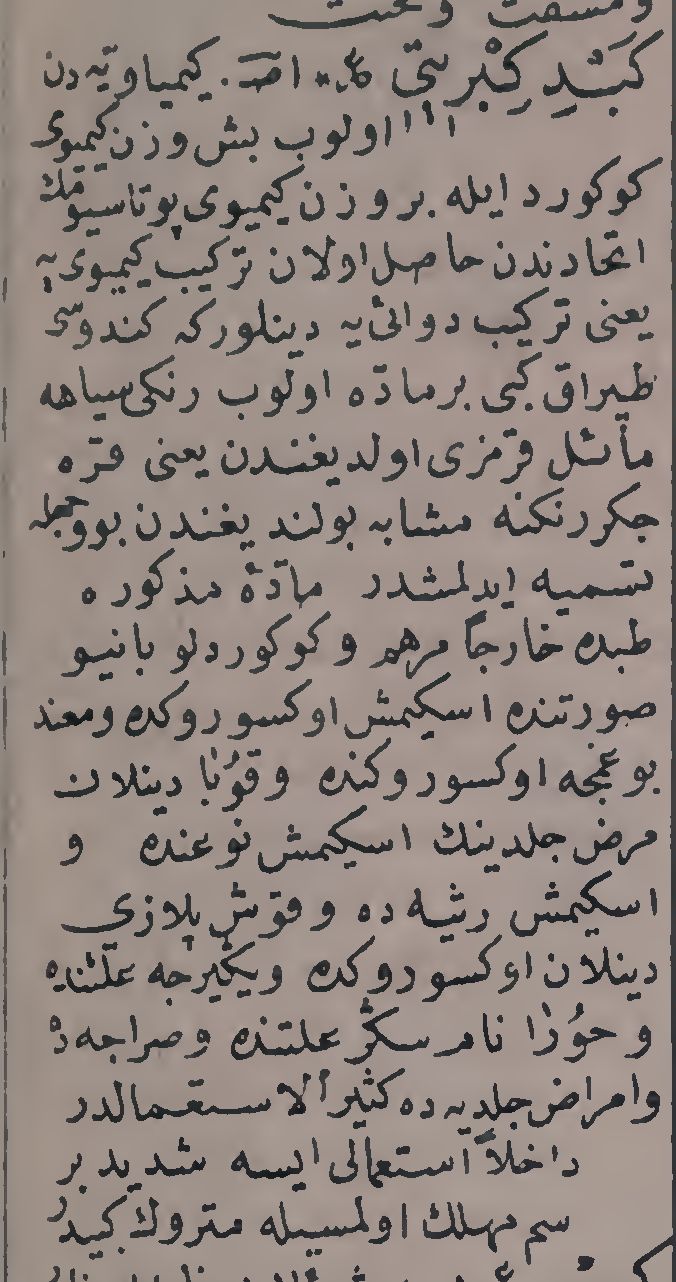 ومسقت وبخت
كَبَدِ كِبْرِيتى اصـ. كيمياويّه دن
١١١ اولوب بش وزن كيميوى
كوكورد ايله بر وزن كيميوى پوتاسيومك
اتحادندن حاصل اولان تركيب كيميوى يه
يعنى تركيب دوائى يه دينلوركه كندوسى
طپراق كبى برمادّه اولوب رنكى سياهه
مائل قرمزى اولديغندن يعنى قره
جكر رنكنه مشابه بولنديغندن بووجهله
تسميه ايدلمشدر مادّۀ مذكوره
طبده خارجاً مرهم و كوكوردلو بانيو
صورتنده اسكيمش اوكسوروكده ومعند
بوغمجه اوكسوروكنده وقوُبا دينلان
مرض جلدينك اسكيمش نوعنده و
اسكيمش رثيه ده وقوش پلازى
دينلان اوكسوروكده ويكيرجه علّتنده
و نام علتنده وصراجه ده
وامراض جلديه ده كثير الاستعمالدر
داخلاً استعمالى ايسه شديد بر
سم مهلك اولمسيله متروك كبيدر